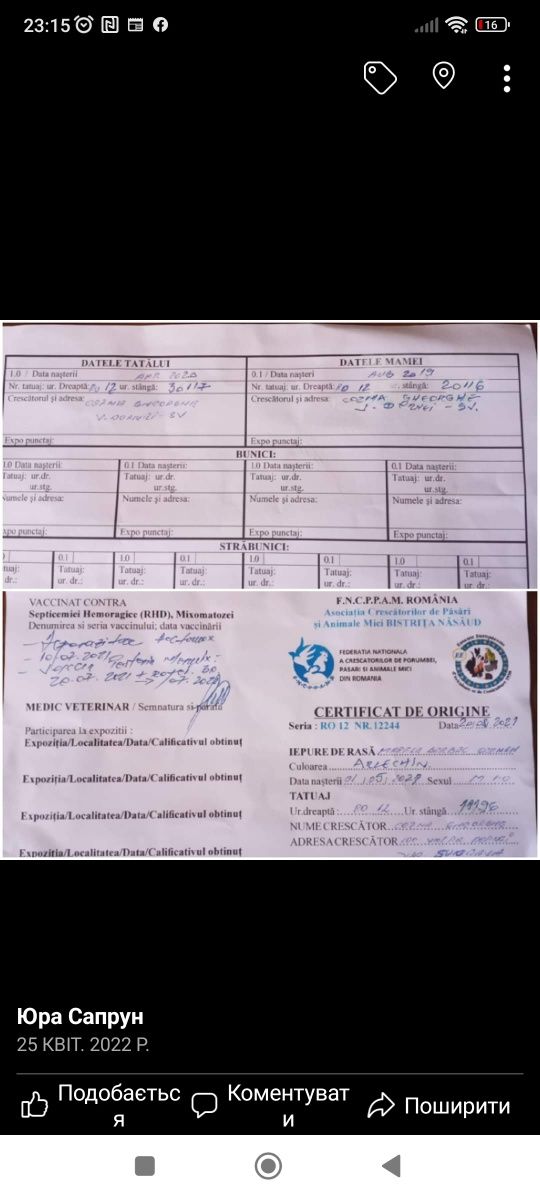 23:15
16
DATELE TATĂLUI
DATELE MAMEI
1.0 / Data nașterii APR 2020
0.1 / Data nașteri AUG 2019
Nr. tatuaj: ur. Dreaptă: 12 ur. stângă: 30117
Nr. tatuaj: ur. Dreaptă: RO 12 ur. stângă: 20116
Crescătorul și adresa: COZMA GHEORGHE
Crescătorul și adresa: COZMA GHEORGHE
Expo punctaj:
Expo punctaj:
BUNICI:
1.0 Data nașterii:
0.1 Data nașterii:
1.0 Data nașterii:
0.1 Data nașterii:
Tatuaj: ur.dr.
Tatuaj: ur.dr.
Tatuaj: ur.dr.
Tatuaj: ur.dr.
ur.stg.
ur.stg.
ur.stg.
ur.stg.
Numele și adresa:
Numele și adresa:
Numele și adresa:
Numele și adresa:
Expo punctaj:
Expo punctaj:
Expo punctaj:
Expo punctaj:
STRĂBUNICI:
0.1
1.0
0.1
1.0
0.1
1.0
0.1
Tatuaj:
Tatuaj:
Tatuaj:
Tatuaj:
Tatuaj:
Tatuaj:
ur. dr.:
ur. dr.:
ur. dr.:
ur. dr.:
ur. dr.:
ur. dr.:
VACCINAT CONTRA
Septicemiei Hemoragice (RHD), Mixomatozei
Denumirea si seria vaccinului; data vaccinării
10/07.2021
20.07.2021
MEDIC VETERINAR / Semnatura si parafa
Participarea la expozitii :
Expoziția/Localitatea/Data/Calificativul obtinuț
Expoziția/Localitatea/Data/Calificativul obtinuț
Expoziția/Localitatea/Data/Calificativul obtinuț
Expoziția/Localitatea/Data/Calificativul obtinuț
F.N.C.P.P.A.M. ROMÂNIA
Asociația Crescătorilor de Păsări
și Animale Mici BISTRIȚA NĂSĂUD
FEDERATIA NATIONALA
A CRESCATORILOR DE PORUMBEI,
PASARI SI ANIMALE MICI
DIN ROMANIA
CERTIFICAT DE ORIGINE
Seria : RO 12 NR.12244 Data 20.08.2021
IEPURE DE RASĂ
Culoarea ARLECHIN
Data nașterii 01.05. Sexul
TATUAJ
Ur.dreaptă: RO 12 Ur. stângă 11196
NUME CRESCĂTOR COZMA GHEORGHE
ADRESA CRESCĂTOR
SUCEAVA
Юра Сапрун
25 КВІТ. 2022 Р.
Подобаєтьс
я
Коментуват
и
Поширити